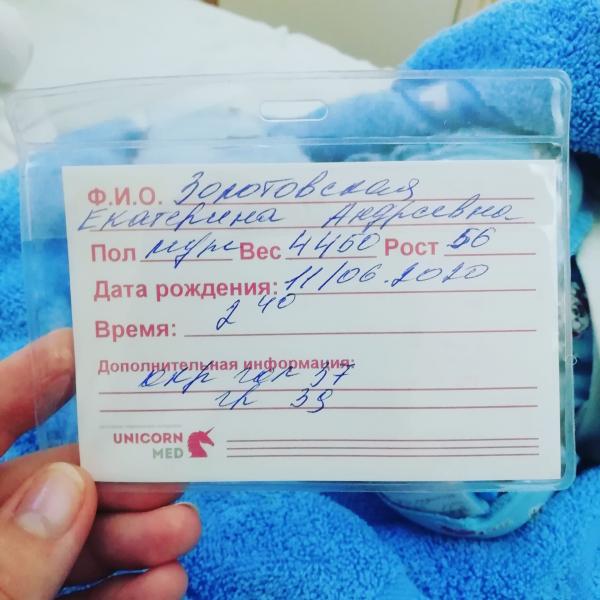 Ф.И.О. Золотовская
Екатерина Андреевна
Пол муж Вес 4460 Рост 56
Дата рождения: 11/06.2020
Время: 2 40
Дополнительная информация:
окр гол 37
гр 39
UNICORN
MED